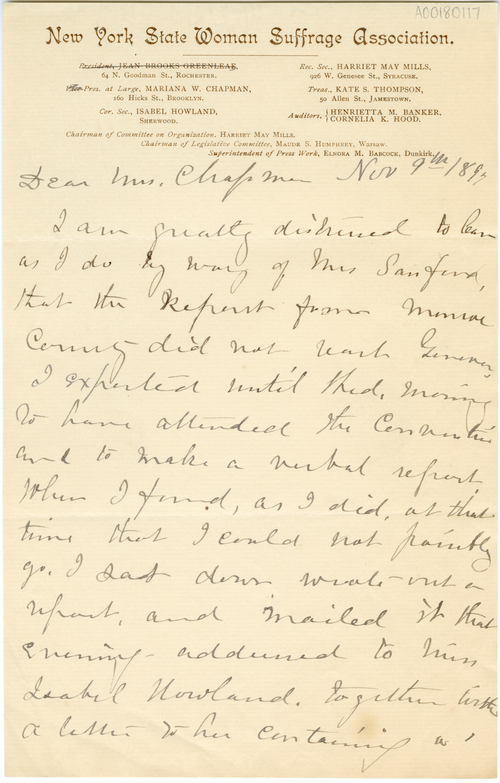 A00180117
New York State Woman Suffrage Association.
President, JEAN BROOKS GREENLEAF,
64 N. Goodman St., ROCHESTER.
Vice-Pres. at Large, MARIANA W. CHAPMAN,
160 Hicks St., BROOKLYN.
Cor. Sec., ISABEL HOWLAND,
SHERWOOD.
Rec. Sec., HARRIET MAY MILLS,
926 W. Genesee St., SYRACUSE.
Treas., KATE S. THOMPSON,
50 Allen St., JAMESTOWN.
Auditors, { HENRIETTA M. BANKER,
CORNELIA K. HOOD.
Chairman of Committee on Organization, HARRIET MAY MILLS.
Chairman of Legislative Committee, MAUDE S. HUMPHREY, Warsaw.
Superintendent of Press Work, ELNORA M. BABCOCK, Dunkirk.
Dear Mrs. Chapman Nov 9th 1897
I am greatly distressed to learn
as I do by way of Mrs Sanford,
that the Report from Monroe
County did not reach Geneva,
I expected until Wed. morning
to have attended the Convention
and to make a verbal report
When I found, as I did, at that
time that I could not possibly
go. I sat down wrote out a
report, and mailed it that
evening - addressed to Miss
Isabel Howland. Together with
a letter to her containing